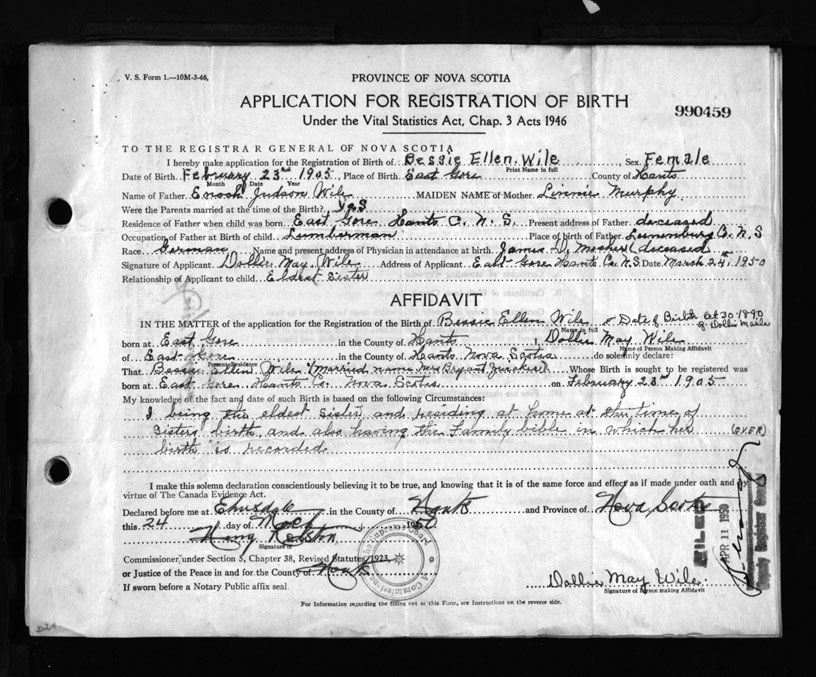 V. S. Form 1.—10M-3-46.
PROVINCE OF NOVA SCOTIA
APPLICATION FOR REGISTRATION OF BIRTH
990459
Under the Vital Statistics Act, Chap. 3 Acts 1946
TO THE REGISTRAR GENERAL OF NOVA SCOTIA
I hereby make application for the Registration of Birth of Bessie Ellen Wile Sex Female
Print Name in full
Date of Birth February 23rd 1905, Place of Birth East Gore County of Hants
Month Date Year
Name of Father Enoch Judson Wile MAIDEN NAME of Mother Linnie Murphy
Were the Parents married at the time of the Birth? Yes
Residence of Father when child was born East Gore Hants C. N. S. Present address of Father deceased
Occupation of Father at Birth of child Lumberman Place of birth of Father Lunenburg C. N. S
Race German Name and present address of Physician in attendance at birth James D. Mosher (deceased
Signature of Applicant Dollie May Wile Address of Applicant East Gore Hants Co. N.S. Date March 24th 1950
Relationship of Applicant to child Eldest Sister
AFFIDAVIT
IN THE MATTER of the application for the Registration of the Birth of Bessie Ellen Wile Date of Birth Oct 30-1890
Name in full of Dollie M Wile
born at East Gore in the County of Hants I, Dollie May Wile
Name of Person Making Affidavit
of East Gore in the County of Hants Nova Scotia do solemnly declare:
Present Residence
That Bessie Ellen Wile (Married name Mrs Bryant Whose Birth is sought to be registered was
born at East Gore Hants Co. Nova Scotia on February 23rd 1905
My knowledge of the fact and date of such Birth is based on the following Circumstances:
I being the eldest Sister and residing at home at the time of
Sisters birth, and also having the Family bible in which her (OVER)
birth is recorded
I make this solemn declaration conscientiously believing it to be true, and knowing that it is of the same force and effect as if made under oath and by
virtue of The Canada Evidence Act.
Declared before me at in the County of Hants and Province of Nova Scotia
this 24 day of March 1950
Signature of
Commissioner, under Section 5, Chapter 38, Revised Statutes, 1923,
or Justice of the Peace in and for the County of Hants
If sworn before a Notary Public affix seal.
Dollie May Wile.
Signature of Person making Affidavit
For Information regarding the filling out of this Form, see Instructions on the reverse side.
FILED
APR 11 1950
Deputy Registrar General